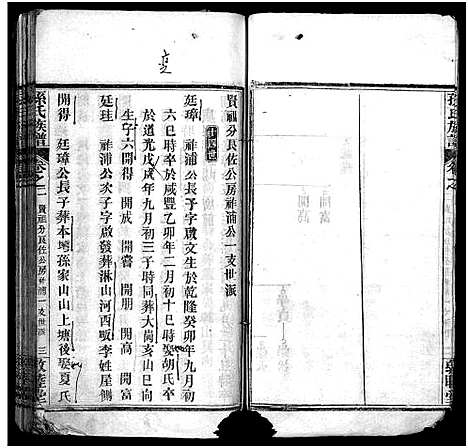 賢祖分長佐公房祥浦公一支世派
廷璋 祥浦公長子字啟文生於乾隆癸卯年九月初
六巳時卒於咸豐乙卯年二月初十巳時娶胡氏卒
於道光戊戌年九月初三子時同葬大尚亥山巳向
生子六開得 開成 開嘗 開朋 開高 開富
廷珪 祥浦公次子字啟發葬淋山河西畈李姓屋側
開得 廷璋公長子葬本塆孫家山山上塘後娶夏氏
孫氏族譜 卷之二 賢祖分長佐公房祥浦一支世派 三 敦睦堂
孫氏族譜 卷之
開富
開高